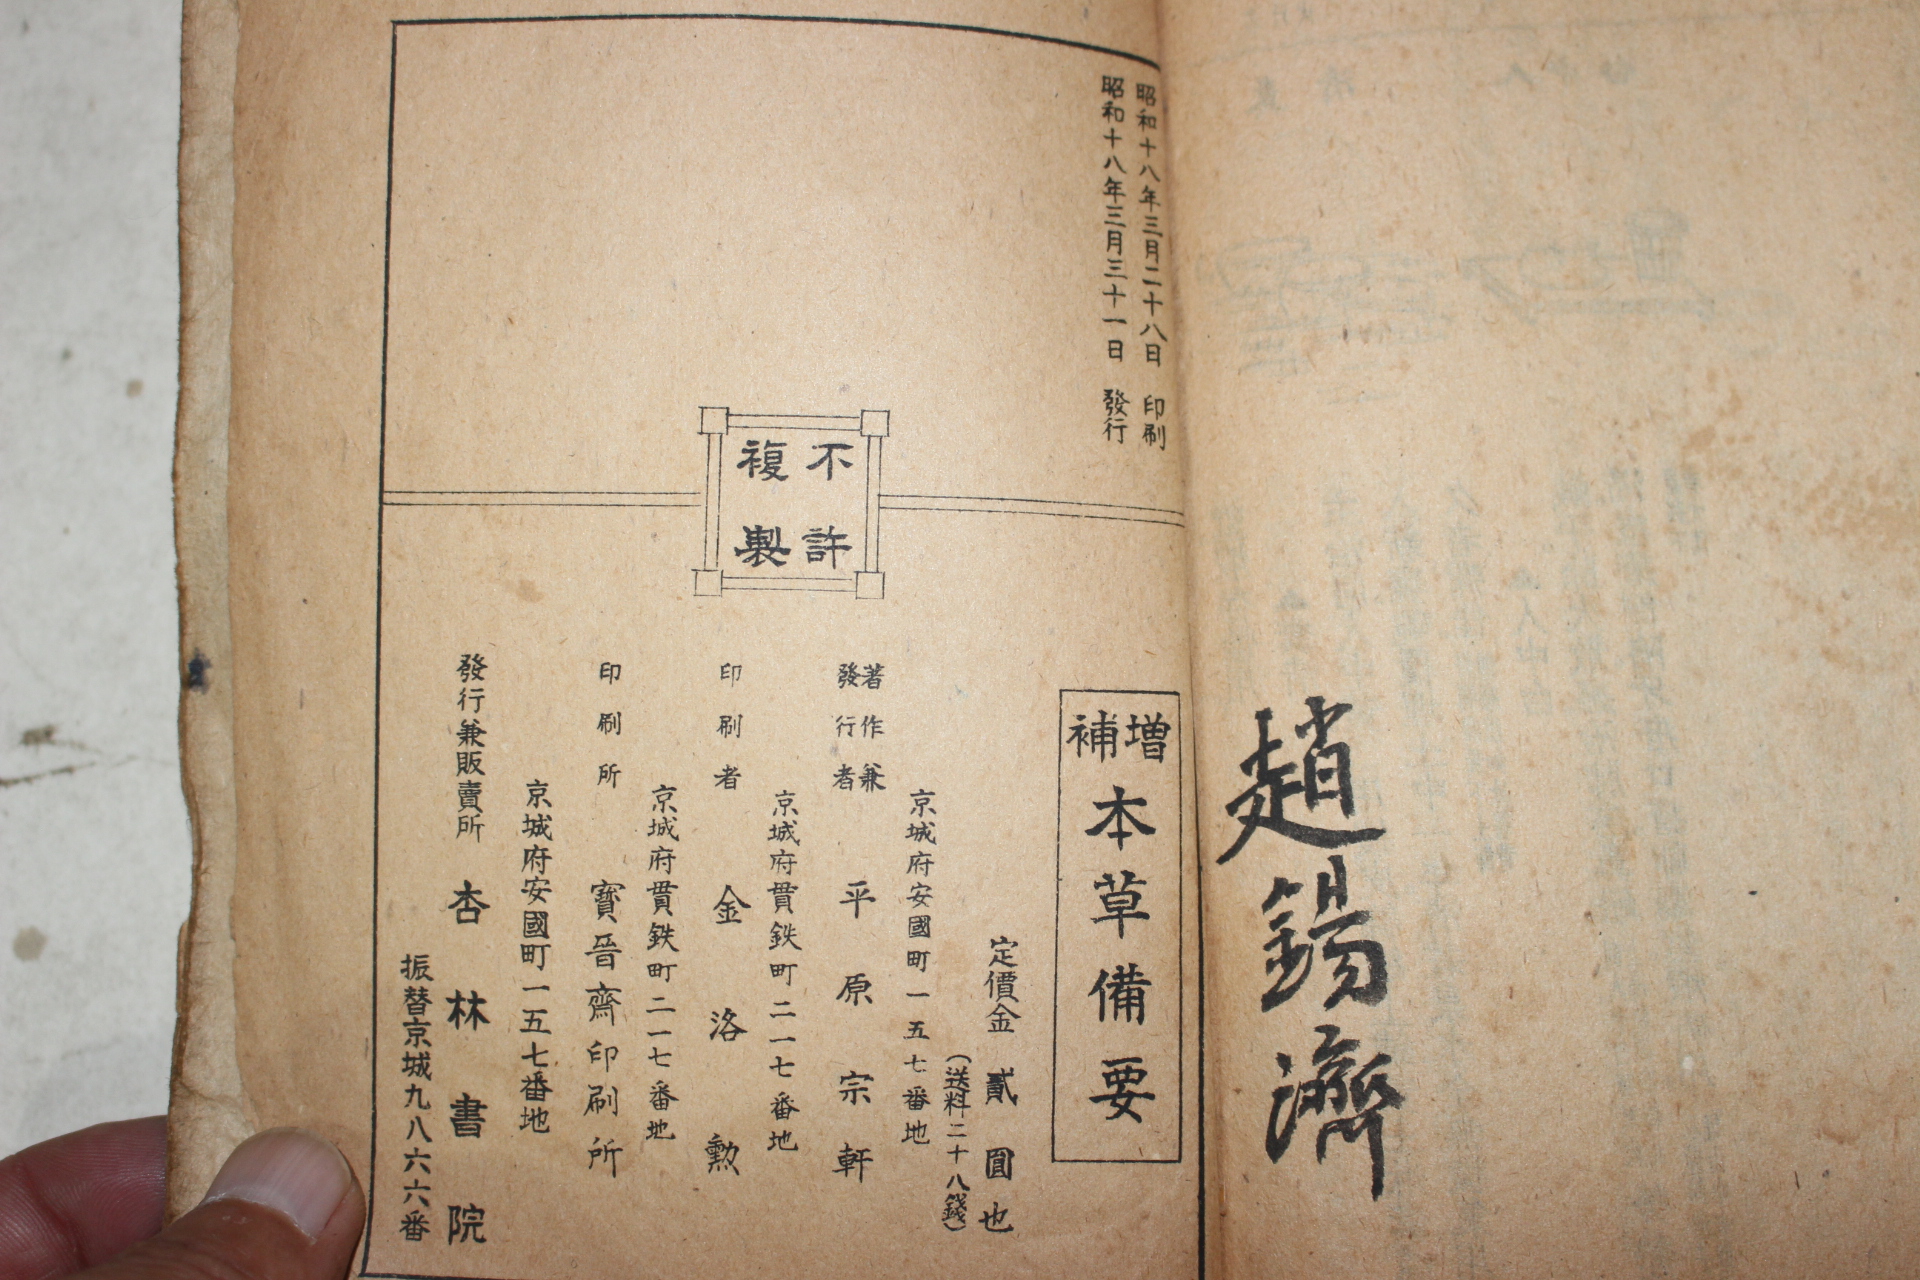 趙錫濟
昭和十八年三月二十八日 印刷
昭和十八年三月三十一日 發行
不許
複製
增補 本草備要
定價金 貳圓也
(送料二十八錢)
京城府安國町一五七番地
著作兼
發行者 平原宗軒
京城府貫鉄町二一七番地
印刷者 金洛勳
京城府貫鉄町二一七番地
印刷所 寶晉齋印刷所
京城府安國町一五七番地
發行兼販賣所 杏林書院
振替京城九八六六番